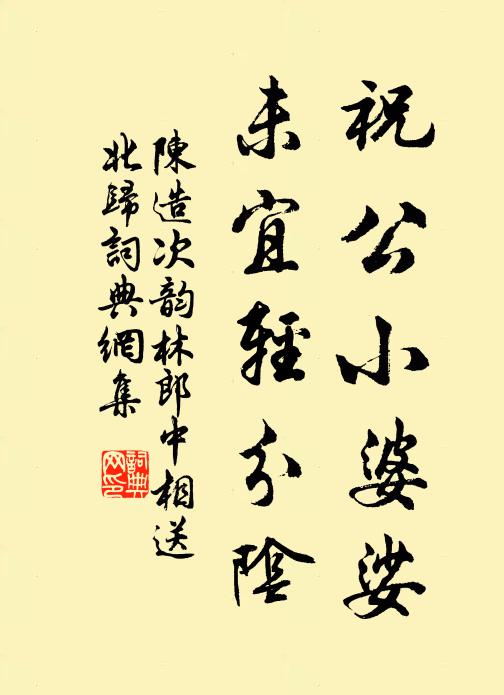 祝公小婆娑
未宜輕分陰
陳造次韵林郎中相送
北歸詞典網集
詞典网印